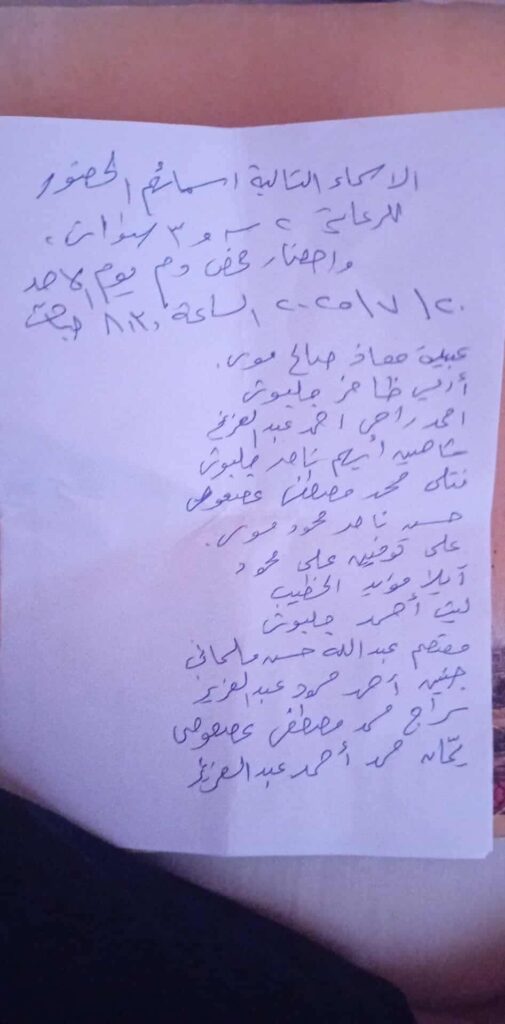 الاسماء التالية اسمائهم الحضور
للرعاية ٢ سنه و ٣ سنوات ،
واحضار فحص دم يوم الاحد
٢٠٢٥/٧/٢٠ الساعة ٨،٣٠ صباحا
معاذ صالح موسى .
ظافر جلبوش
احمد راجي احمد عبد العزيز
شاهين أيهم ناصر جلبوش
محمد مصطفى
حسن ناصر محمود موسى .
علي توفيق علي محمود
آيلا مؤيد الخطيب
ليث أحمد جلبوش
معتصم عبد الله حسن
جنين أحمد محمود عبد العزيز
سراج محمد مصطفى
محمد أحمد عبد العزيز